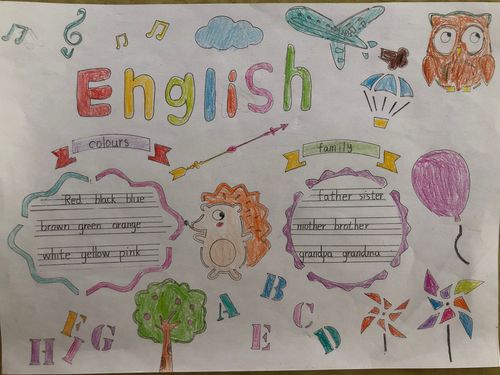 English
colours
family
Red black blue
brown green orange
white yellow pink
father sister
mother brother
grandpa grandma
A B
E D
F G
H I